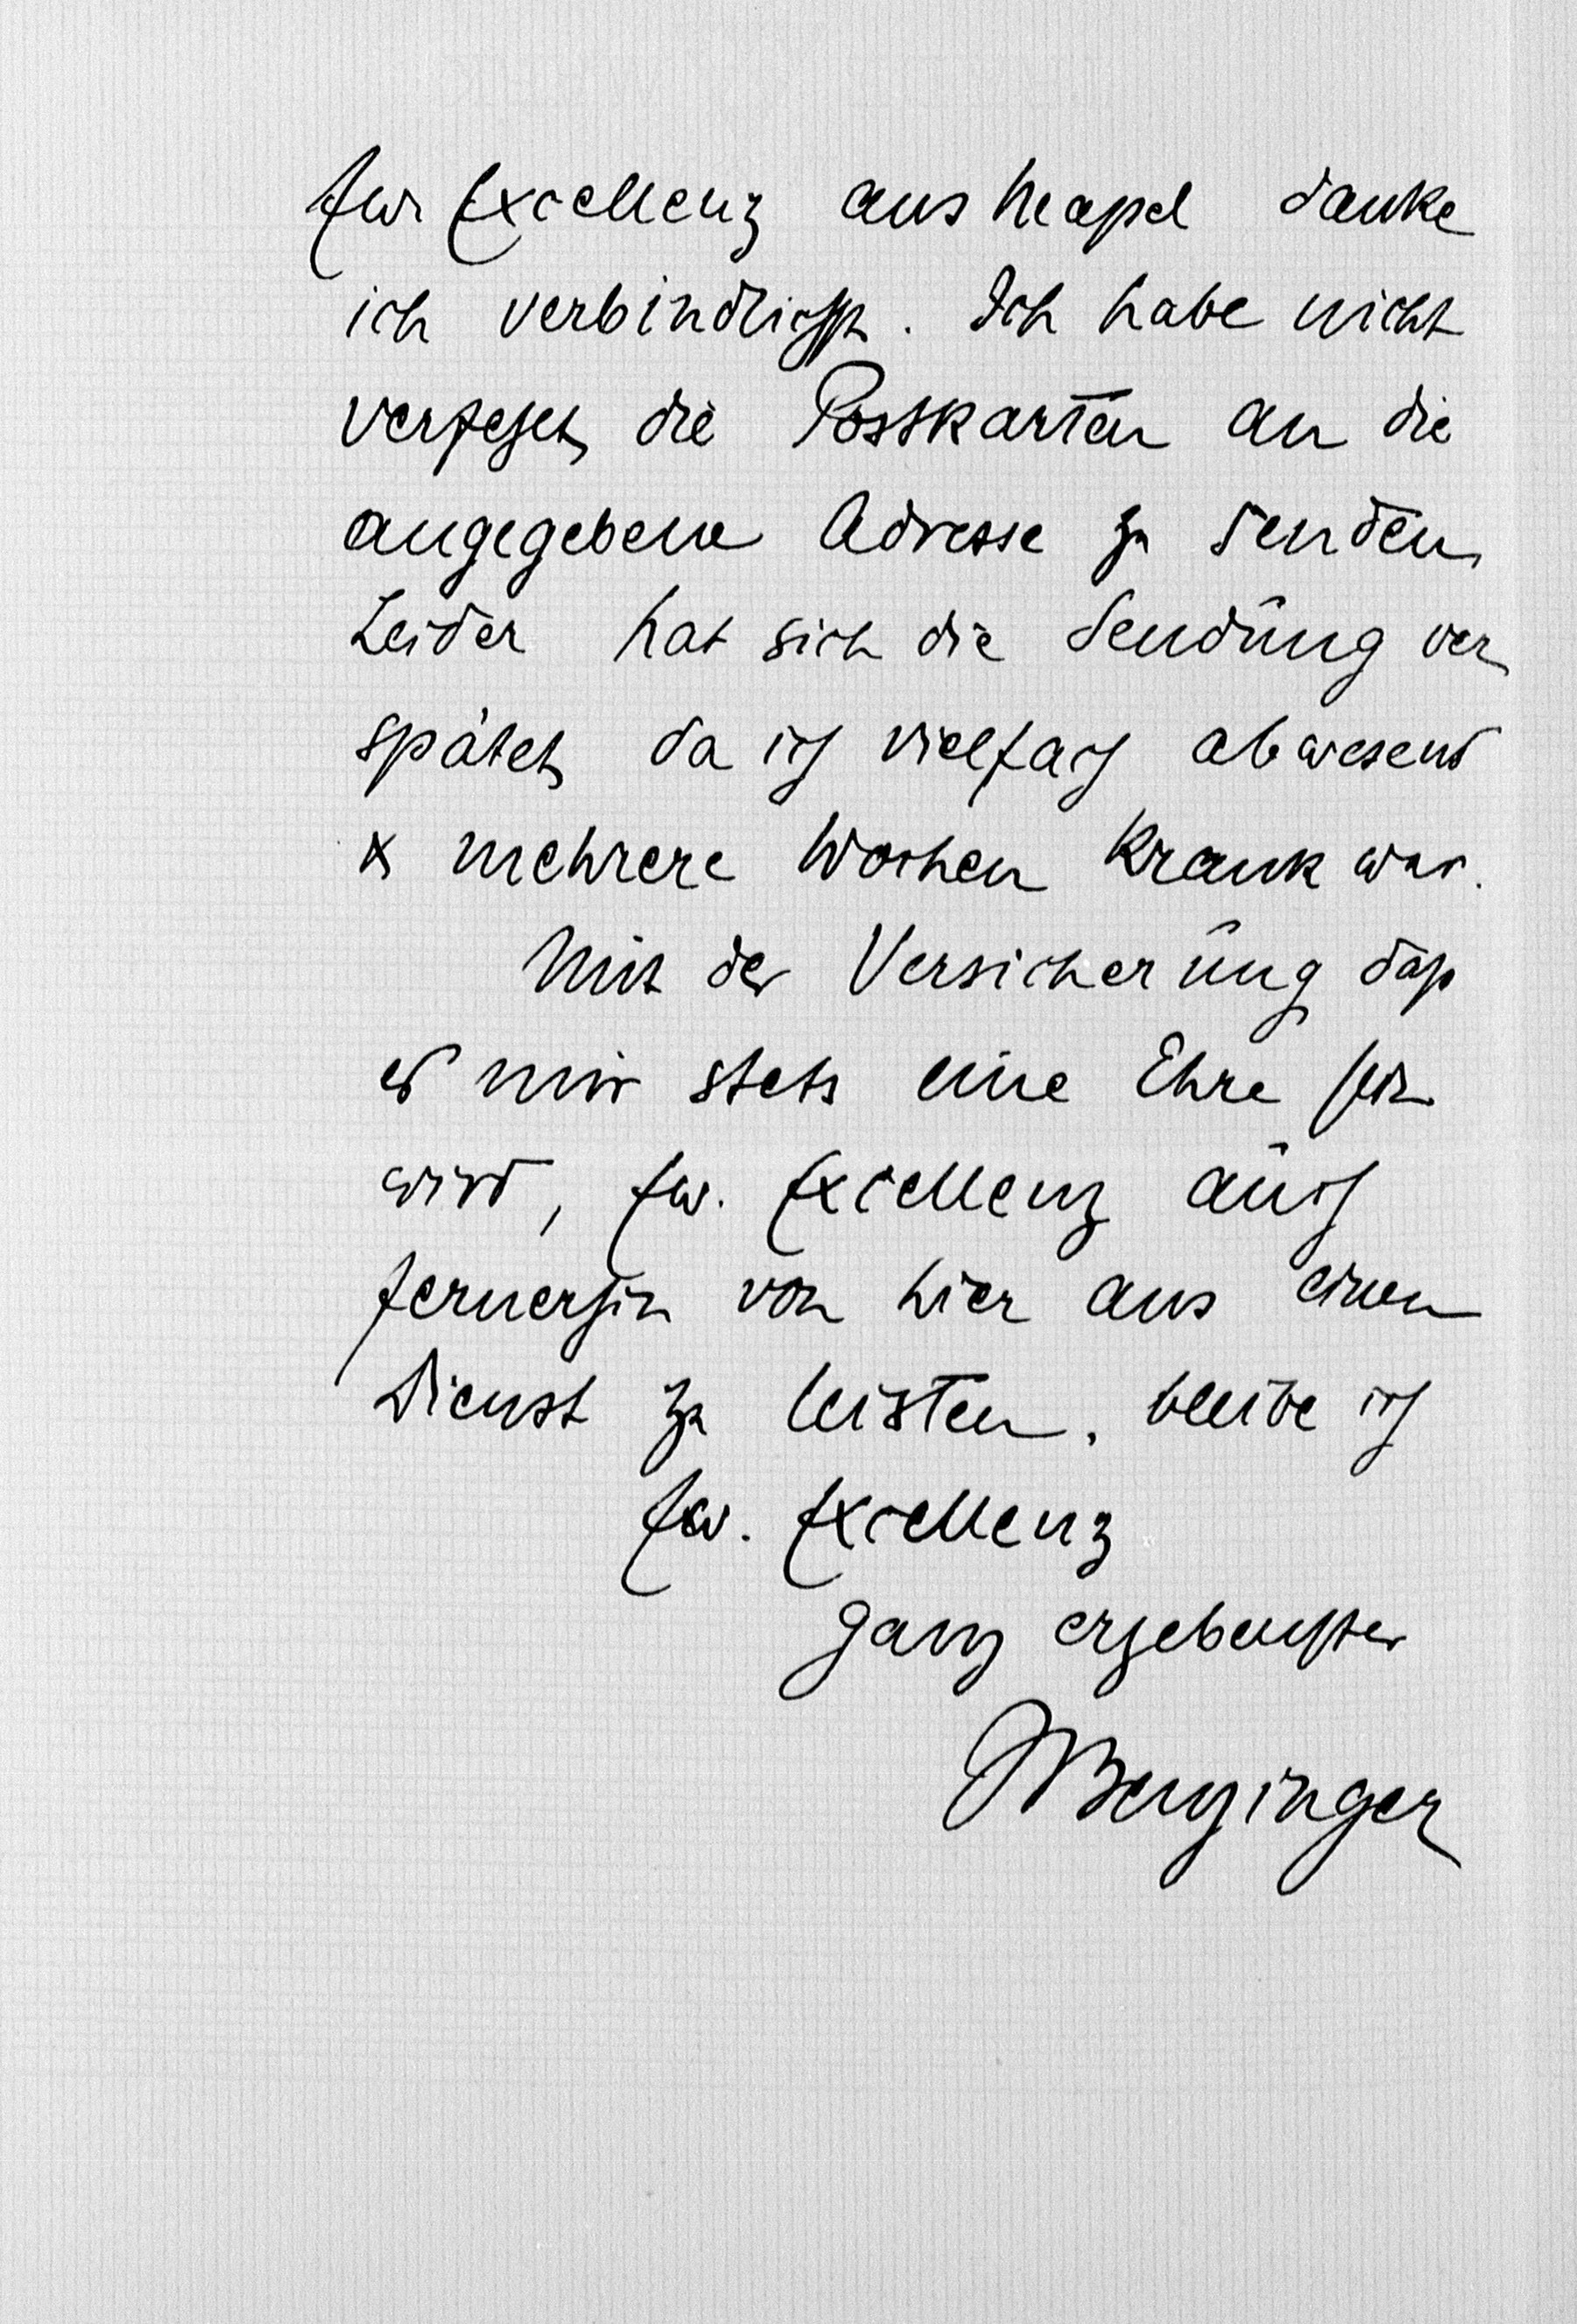 Ew Excellenz aus Neapel danke
ich verbindlichst. Ich habe nicht
verfehlt, die Postkarten an die
angegebene Adresse zu senden,
Leider hat sich die Sendung ver
spätet, da ich vielfach abwesend
& mehrere Wochen krank war.
Mit der Versicherung daß
es mir stets eine Ehre sein
wird, Ew. Excellenz auch
fernerhin von hier aus einen
Dienst zu leisten, bleibe ich
Ew. Excellenz
ganz ergebenster